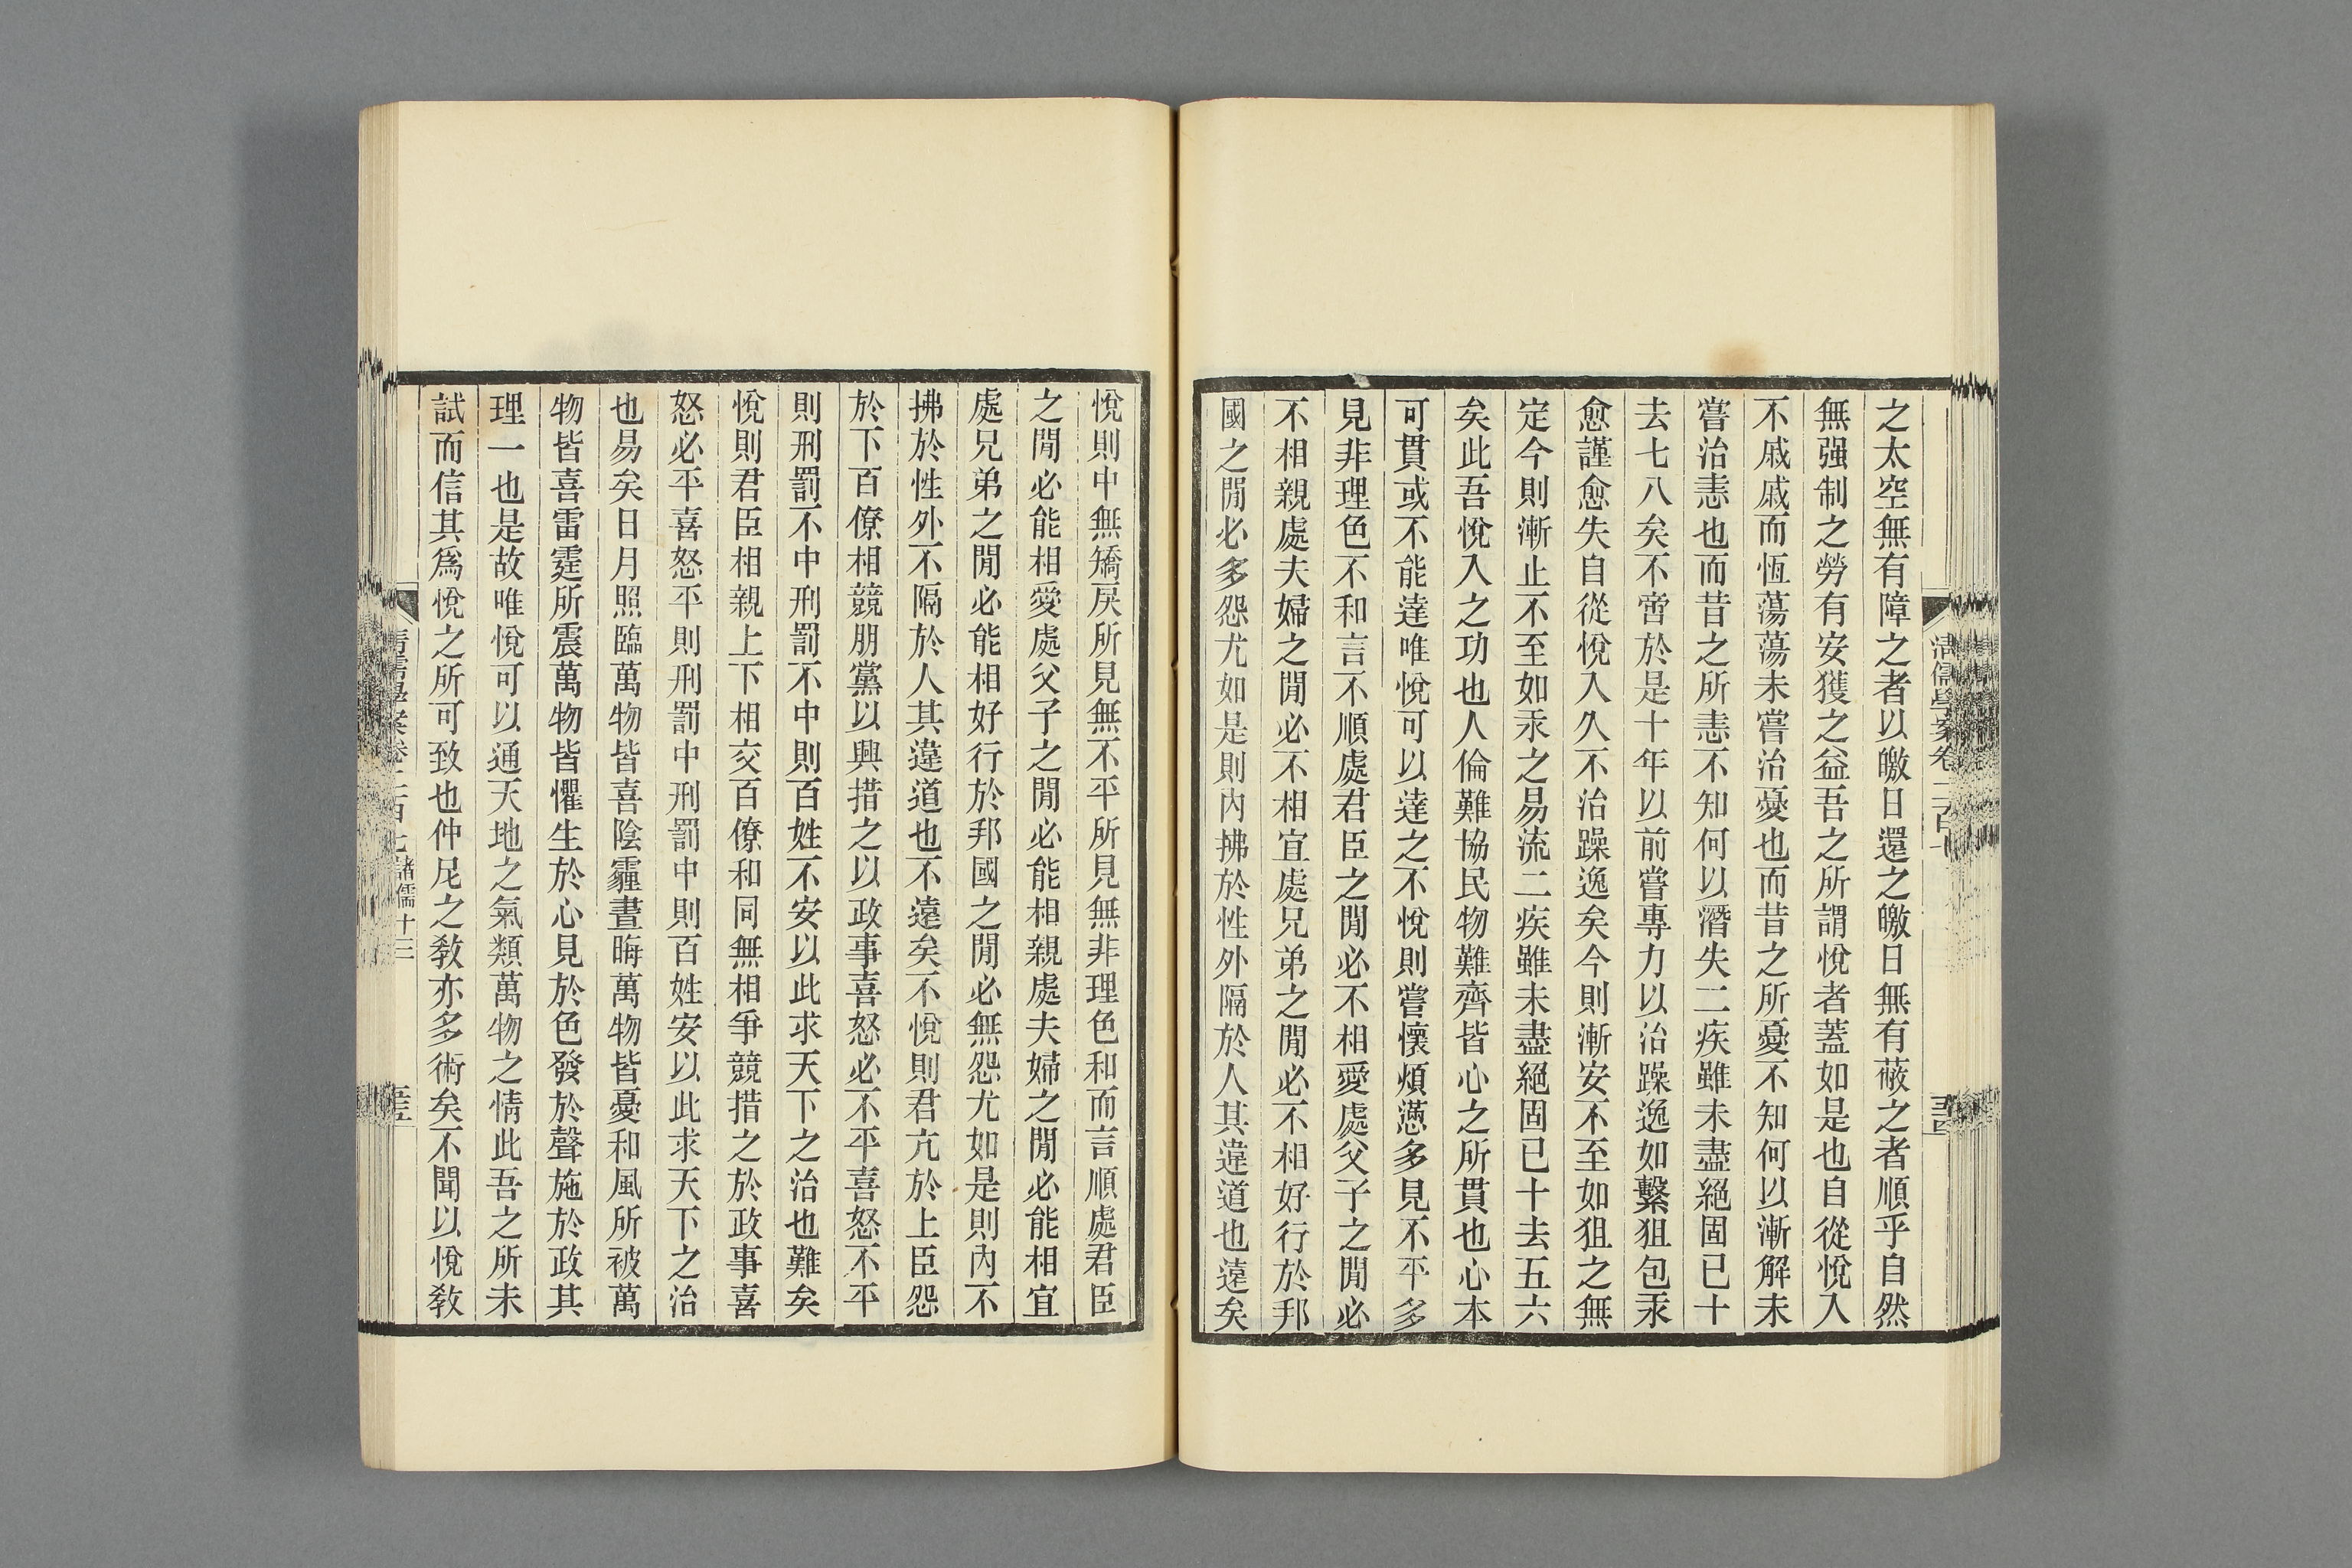 之太空無有障之者以皦日還之皦日無有蔽之者順乎自然
無强制之勞有安獲之益吾之所謂悅者蓋如是也自從悅入
不戚戚而恆蕩蕩未嘗治憂也而昔之所憂不知何以漸解未
嘗治恚也而昔之所恚不知何以潛失二疾雖未盡絕固已十
去七八矣不啻於是十年以前嘗專力以治躁逸如繫狙包汞
愈謹愈失自從悅入久不治躁逸矣今則漸安不至如狙之無
定今則漸止不至如汞之易流二疾雖未盡絕固已十去五六
矣此吾悅入之功也人倫難協民物難齊皆心之所貫也心本
可貫或不能達唯悅可以達之不悅則嘗懷煩懣多見不平多
見非理色不和言不順處君臣之閒必不相愛處父子之閒必
不相親處夫婦之閒必不相宜處兄弟之閒必不相好行於邦
國之閒必多怨尤如是則內拂於性外隔於人其違道也遠矣
悅則中無矯戾所見無不平所見無非理色和而言順處君臣
之閒必能相愛處父子之閒必能相親處夫婦之閒必能相宜
處兄弟之閒必能相好行於邦國之閒必無怨尤如是則內不
拂於性外不隔於人其違道也不遠矣不悅則君亢於上臣怨
於下百僚相競朋黨以興措之以政事喜怒必不平喜怒不平
則刑罰不中刑罰不中則百姓不安以此求天下之治也難矣
悅則君臣相親上下相交百僚和同無相爭競措之於政事喜
怒必平喜怒平則刑罰中刑罰中則百姓安以此求天下之治
也易矣日月照臨萬物皆喜陰霾晝晦萬物皆憂和風所被萬
物皆喜雷霆所震萬物皆懼生於心見於色發於聲施於政其
理一也是故唯悅可以通天地之氣類萬物之情此吾之所未
試而信其爲悅之所可致也仲尼之敎亦多術矣不聞以悅敎
清儒學案卷二百七 諸儒十三